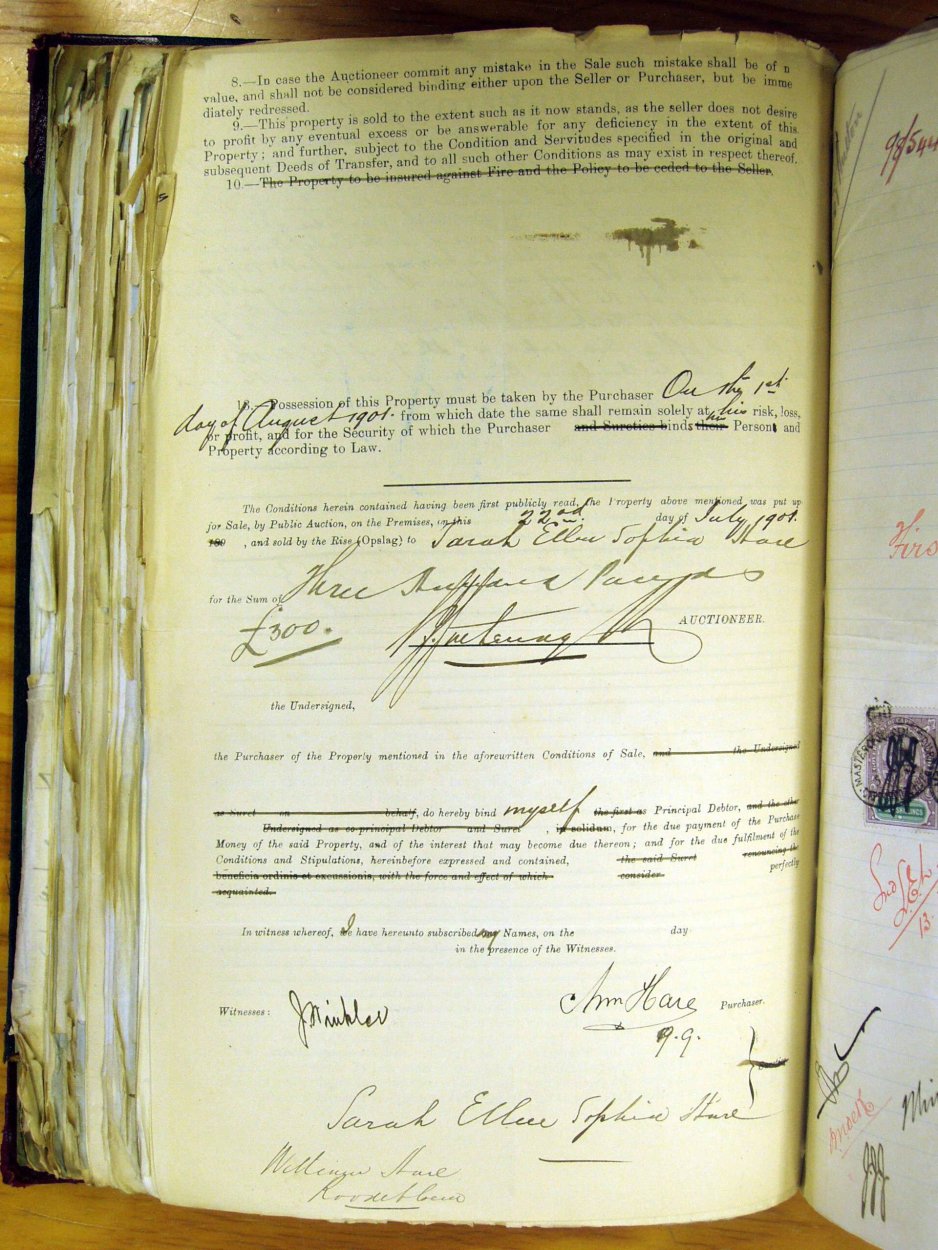 8.—In case the Auctioneer commit any mistake in the Sale such mistake shall be of n
value, and shall not be considered binding either upon the Seller or Purchaser, but be imme
diately redressed.
9.—This property is sold to the extent such as it now stands, as the seller does not desire
to profit by any eventual excess or be answerable for any deficiency in the extent of this
Property; and further, subject to the Condition and Servitudes specified in the original and
subsequent Deeds of Transfer, and to all such other Conditions as may exist in respect thereof.
10.—The Property to be insured against Fire and the Policy to be ceded to the Seller.
13. Possession of this Property must be taken by the Purchaser On the 1st
day of August 1901. from which date the same shall remain solely at his risk, loss,
or profit, and for the Security of which the Purchaser and Sureties binds their his Person and
Property according to Law.
The Conditions herein contained having been first publicly read, the Property above mentioned was put up
for Sale, by Public Auction, on the Premises, on this 22nd day of July 1901.
189 , and sold by the Rise (Opslag) to Sarah Ellen Sophia Hare
for the Sum of Three Hundred Pounds
£300.
AUCTIONEER.
the Undersigned,
the Purchaser of the Property mentioned in the aforewritten Conditions of Sale, and the Undersigned
as Suret on behalf, do hereby bind myself the first as Principal Debtor, and the other
Undersigned as co-principal Debtor and Suret , in solidum, for the due payment of the Purchase
Money of the said Property, and of the interest that may become due thereon; and for the due fulfilment of the
Conditions and Stipulations, hereinbefore expressed and contained, the said Suret renouncing the
beneficia ordinis et excussionis, with the force and effect of which consider perfectly
acquainted.
In witness whereof, I have hereunto subscribed my Names, on the day
in the presence of the Witnesses.
Witnesses: J Winkler
Wm Hare Purchaser.
q.q.
Sarah Ellen Sophia Hare
William Hare
Roodebloem